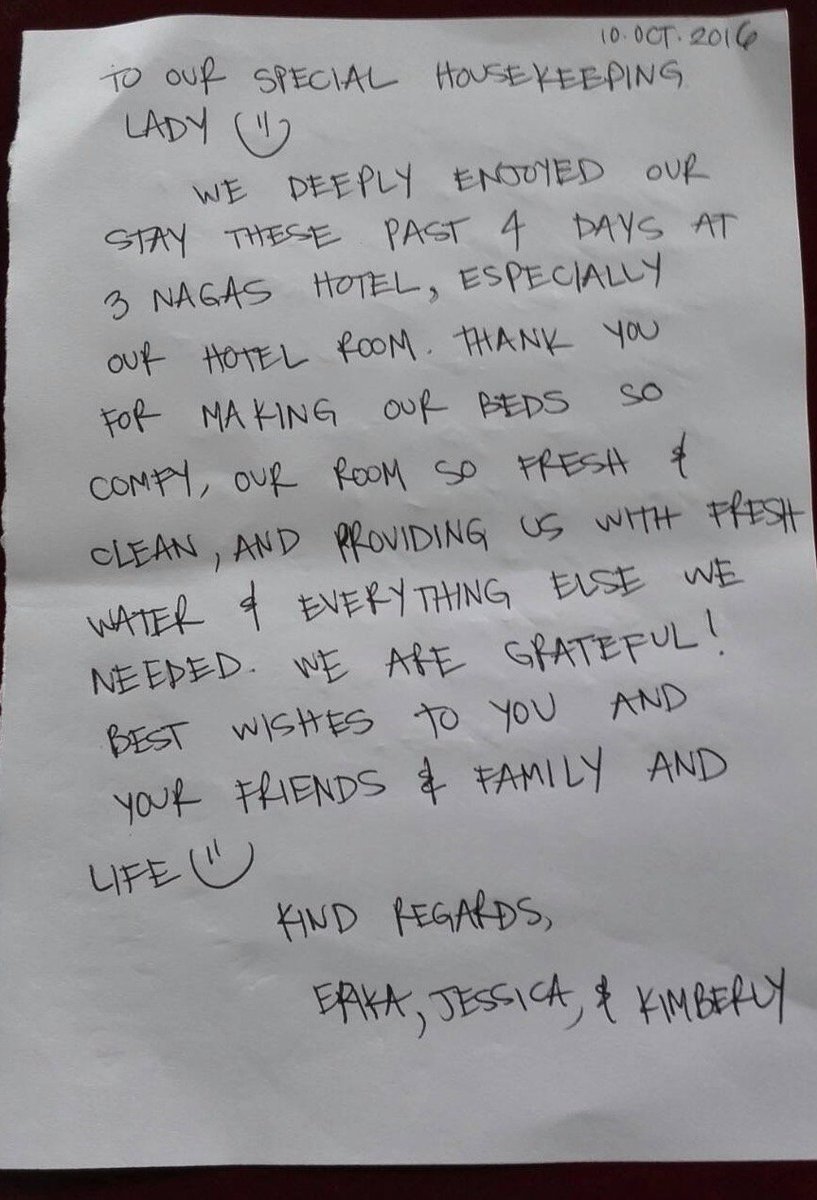 10.OCT.2016
TO OUR SPECIAL HOUSEKEEPING
LADY
WE DEEPLY ENJOYED OUR
STAY THESE PAST 4 DAYS AT
3 NAGAS HOTEL, ESPECIALLY
OUR HOTEL ROOM. THANK YOU
FOR MAKING OUR BEDS SO
COMFY, OUR ROOM SO FRESH &
CLEAN, AND PROVIDING US WITH FRESH
WATER & EVERYTHING ELSE WE
NEEDED. WE ARE GRATEFUL!
BEST WISHES TO YOU AND
YOUR FRIENDS & FAMILY AND
LIFE
KIND REGARDS,
ERIKA, JESSICA, & KIMBERLY